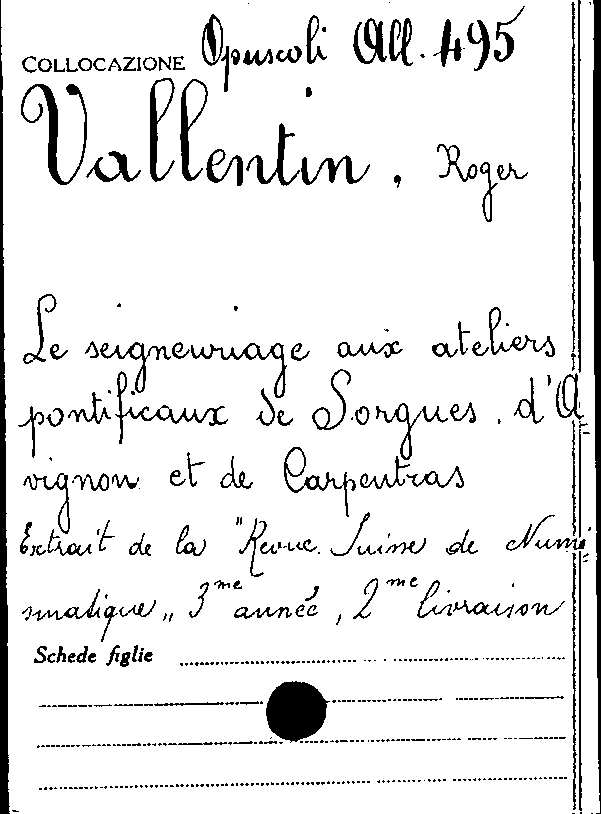 COLLOCAZIONE Opuscoli All. 495
Vallentin, Roger
Le seigneuriage aux ateliers
pontificaux de Sorgues, d'A-
vignon et de Carpentras
Extrait de la "Revue Suisse de Numi-
smatique„ 3me année, 2me livraison
Schede figlie